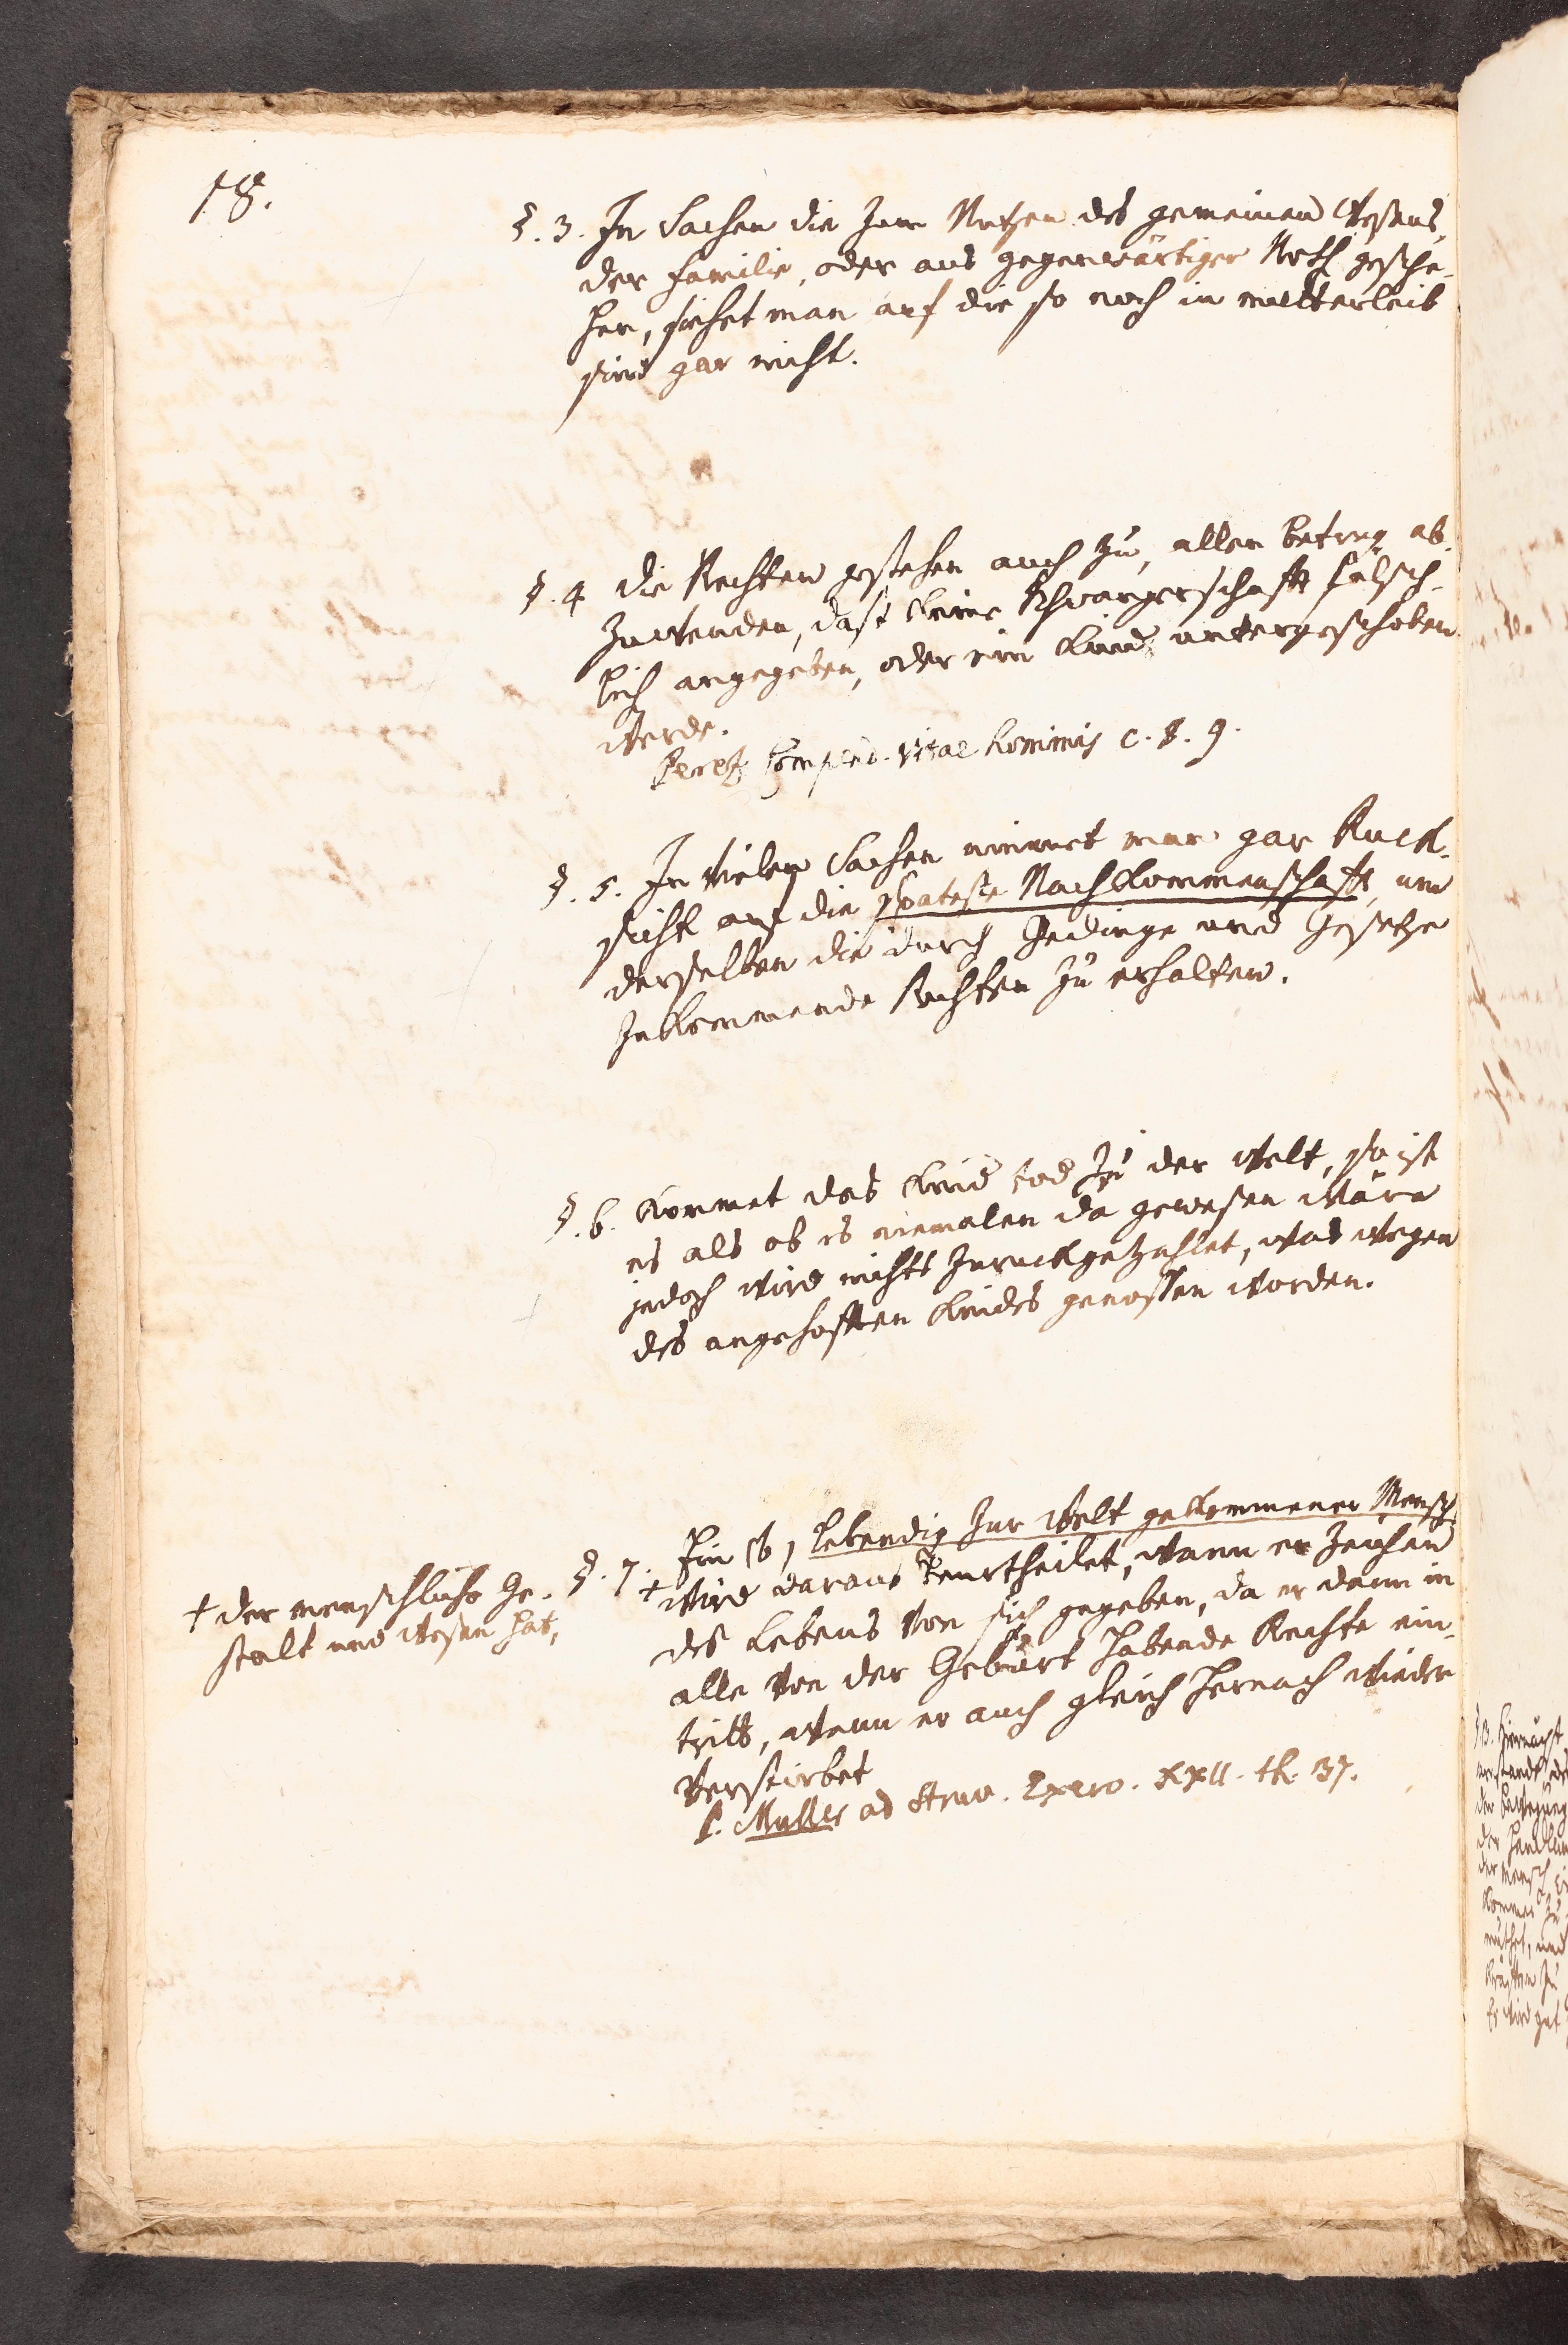 18.
§. 3. In Sachen die zum Nutzen des gemeinen Wesens,
der Familie, oder aus gegenwärtiger Noth gesche-
hen, siehet man auf die so noch in mutterleib
sind gar nicht.
§. 4 die Rechten gestehen auch zu, allen betrug ab-
zuwenden, dass keine Schwangerschafft fälsch-
lich angegeben, oder ein Kind untergeschoben
werde.
Beretz Compend. Vitae hominis c. 8. 9.
§. 5. In vielen Sachen nimmet man gar Ruck-
sicht auf die späteste Nachkommenschafft, um
derselben die durch Gedinge und Gesetze
zukommende Rechten zu erhalten.
§. 6. Kommet das Kind tod zu der Welt, so ist
es als ob es niemalen da gewesen wäre
jedoch wird nichts zuruckgezahlet, was wegen
des angehofften Kindes genossen worden.
§. 7. Ein lebendig zur Welt gekommener Mensch
+ wird daraus beurtheilet, wann er Zeichen
des Lebens von sich gegeben, da er dann in
alle von der Geburt habende Rechte ein-
tritt, wann er auch gleich hernach wieder
verstirbet
s. Muller ad Struv. Exerc. XXII. th. 37.
+ der menschliche Ge-
stalt und Wesen hat,